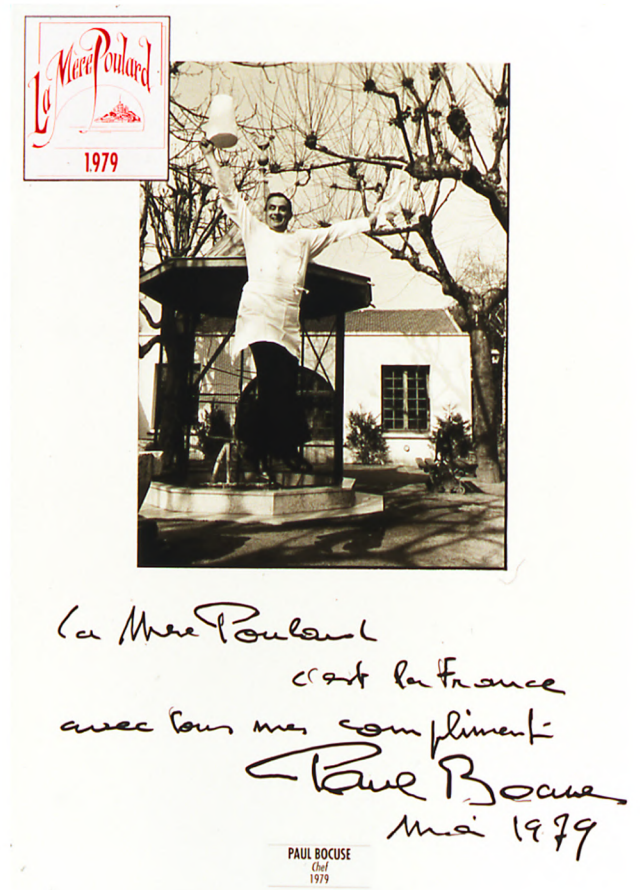 La Mère Poulard
1979
La Mere Poulard
c'est la France
avec tous mes compliments
Paul Bocuse
Mai 1979
PAUL BOCUSE
Chef
1979